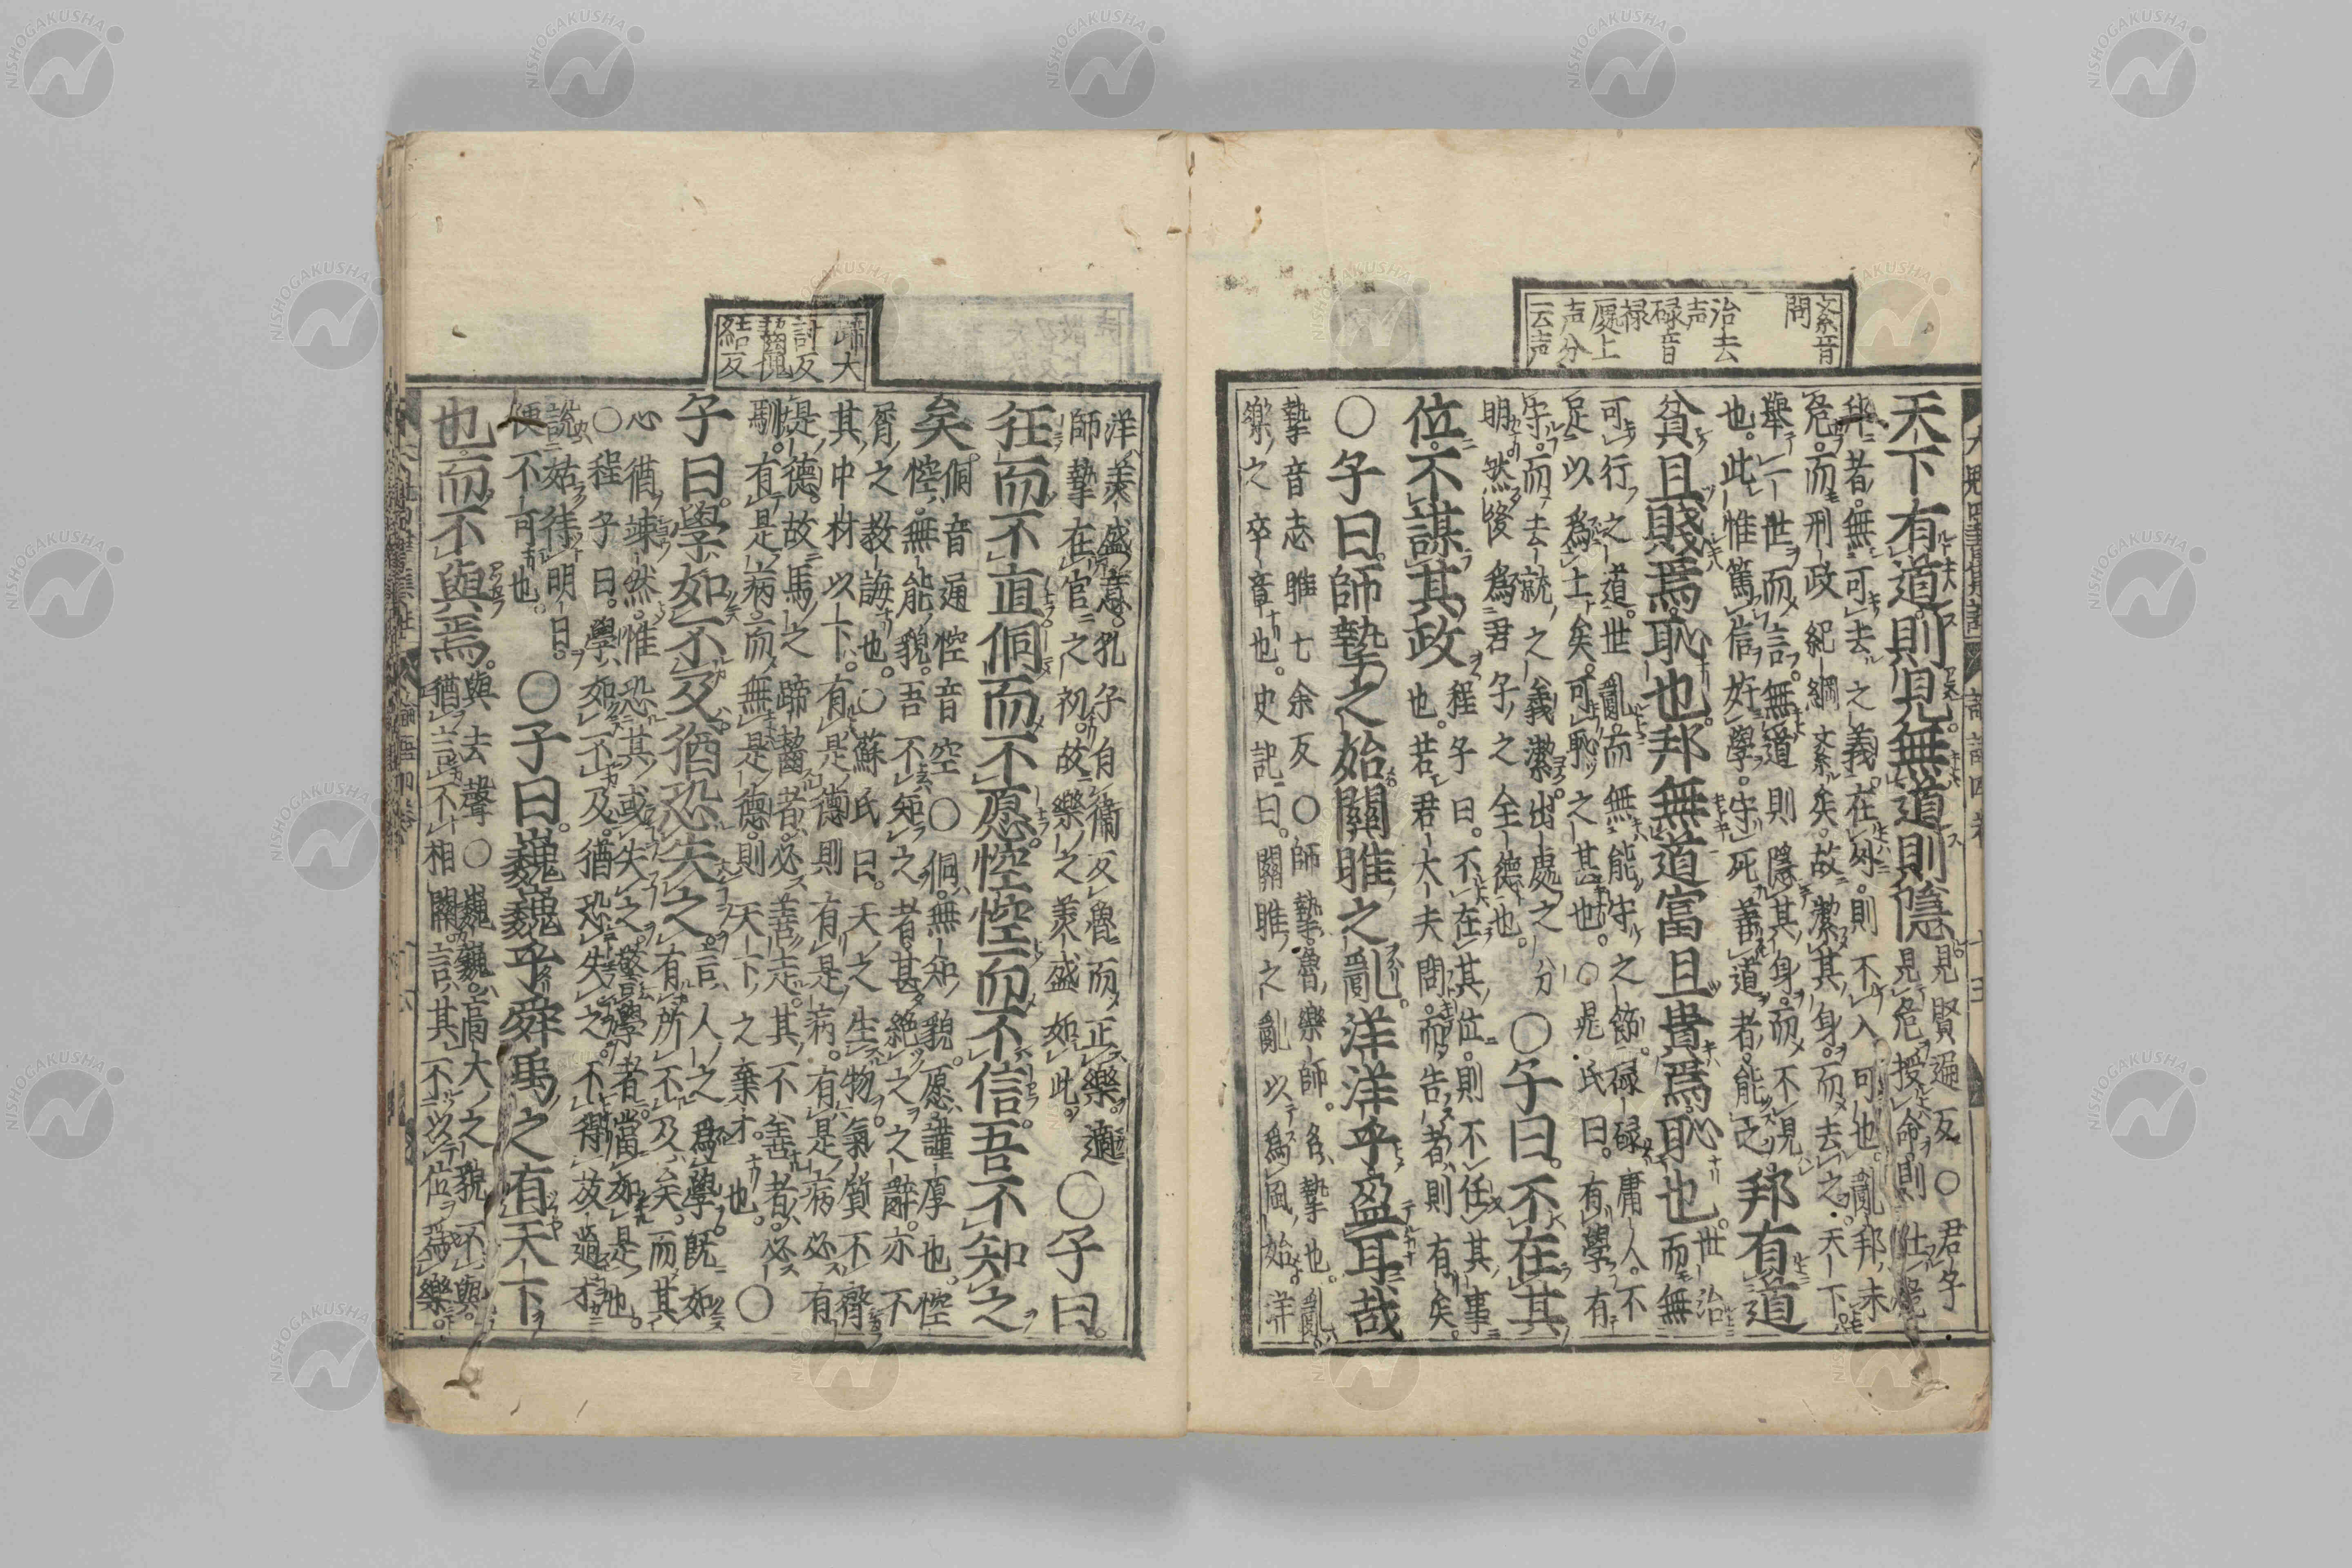 紊音
問
治去
声
碌音
禄
處上
声分
云声
天下有道則見無道則隱
見賢遍反○君子
見危授命則仕危
邦者無可去之義在外則不入可也亂邦未
危而刑政紀綱紊矣故潔其身而去之天下
舉一世而言無道則隱其身而不見
也此惟篤信好學守死善道者能之
邦有道
貧且賤焉恥也邦無道富且貴焉恥也
世治
而無
可行之道世亂而無能守之節碌碌庸人不
足以爲士矣可恥之甚也○晁氏曰有學有
守而去就之義潔出處之分
明然後爲君子之全德也
○子曰不在其
位不謀其政
程子曰不在其位則不任其事
也若君大夫問而告者則有矣
○子曰師摯之始關雎之亂洋洋乎盈耳哉
摯音志雎七余反○師摯魯樂師名摯也亂
樂之卒章也史記曰關雎之亂以爲風始洋
蹄大
討反
齧倪
結反
洋美盛意孔子自衛反魯而正樂適
師摯在官之初故樂之美盛如此
○子曰
狂而不直侗而不愿悾悾而不信吾不知之
矣
侗音通悾音空○侗無知貌愿謹厚也悾
悾無能貌吾不知之者甚絶之之辭亦不
屑之教誨也○蘇氏曰天之生物氣質不齊
其中材以下有是德則有是病有是病必有
是德故馬之蹄齧者必善走其不善者必
馴有是病而無是德則天下之棄才也
○
子曰學如不及猶恐失之
言人之爲學既如
有所不及矣而其
心猶竦然惟恐其或失之警學者當如是也
○程子曰學如不及猶恐失之不得放過才
說姑待明日
便不可也
○子曰巍巍乎舜禹之有天下
也而不與焉
與去聲○巍巍高大之貌不與
猶言不相關言其不以位爲樂